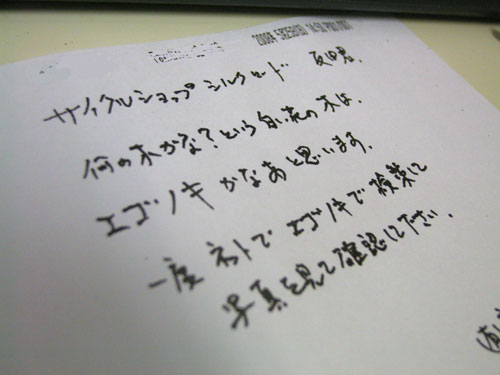 サイクルショップ シルクロード
何の木かな?という白い花の木は、
エゴノキ かなあと思います。
一度 ネットで エゴノキで 検索して
写真を見て確認して下さい。